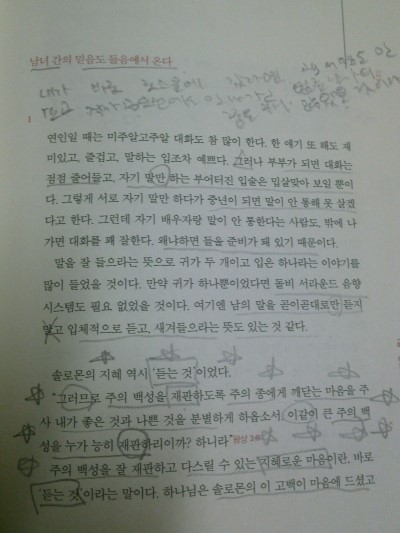 남녀 간의 믿음도 들음에서 온다
내가 바로
연인일 때는 미주알고주알 대화도 참 많이 한다. 한 얘기 또 해도 재
미있고, 즐겁고, 말하는 입조차 예쁘다. 그러나 부부가 되면 대화는
점점 줄어들고, 자기 말만 하는 부어터진 입술은 밉살맞아 보일 뿐이
다. 그렇게 서로 자기 말만 하다가 중년이 되면 말이 안 통해 못 살겠
다고 한다. 그런데 자기 배우자랑 말이 안 통한다는 사람도, 밖에 나
가면 대화를 꽤 잘한다. 왜냐하면 들을 준비가 돼 있기 때문이다.
말을 잘 들으라는 뜻으로 귀가 두 개이고 입은 하나라는 이야기를
많이 들었을 것이다. 만약 귀가 하나뿐이었다면 돌비 서라운드 음향
시스템도 필요 없었을 것이다. 여기엔 남의 말을 곧이곧대로만 듣지
말고 입체적으로 듣고, 새겨들으라는 뜻도 있는 것 같다.
솔로몬의 지혜 역시 '듣는 것'이었다.
"그러므로 주의 백성을 재판하도록 주의 종에게 깨닫는 마음을 주
사 내가 좋은 것과 나쁜 것을 분별하게 하옵소서. 이같이 큰 주의 백
성을 누가 능히 재판하리이까? 하니라" 왕상
주의 백성을 잘 재판하고 다스릴 수 있는 지혜로운 마음이란, 바로
'듣는 것'이라는 말이다. 하나님은 솔로몬의 이 고백이 마음에 드셨고